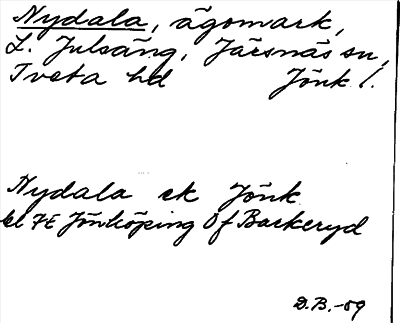 Nydala, ägomark,
L. Julsäng, Järsnäs sn,
Tveta hd Jönk l.
Nydala ek Jönk
bl 7E Jönköping Of Barkeryd
D.B.-59